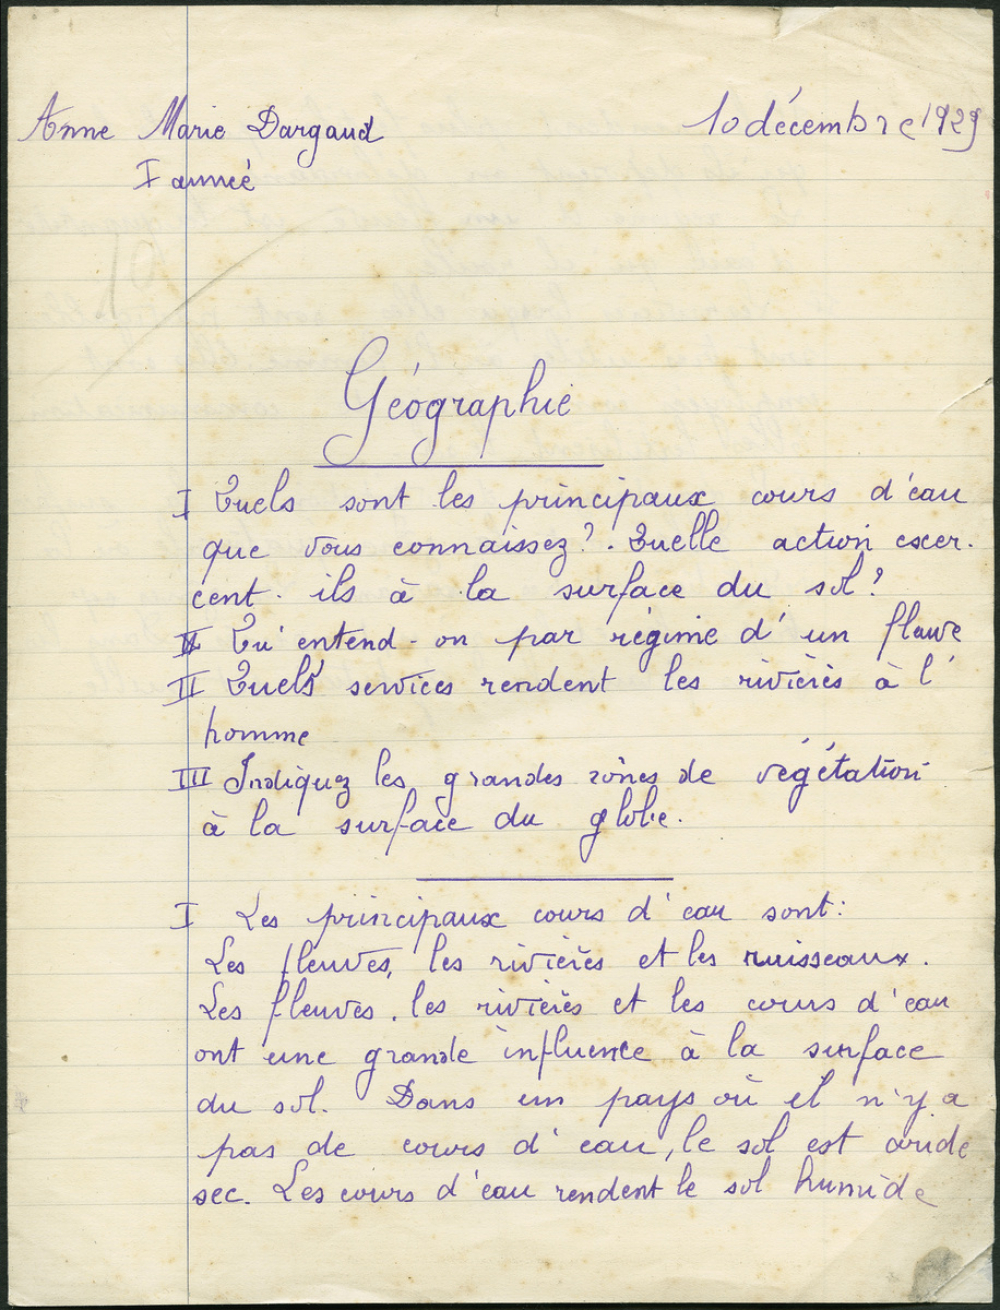 Anne Marie Dargaud
10 décembre 1929
I année
10
Géographie
I Quels sont les principaux cours d'eau
que vous connaissez?. Quelle action excer-
cent-ils à la surface du sol?
II Qu'entend-on par régime d'un fleuve
II Quels services rendent les rivières à l'
homme
III Indiquez les grandes zônes de végétation
à la surface du globe.
I Les principaux cours d'eau sont:
Les fleuves, les rivières et les ruisseaux.
Les fleuves, les rivières et les cours d'eau
ont une grande influence à la surface
du sol. Dans un pays où il n'y a
pas de cours d'eau, le sol est aride
sec. Les cours d'eau rendent le sol humide